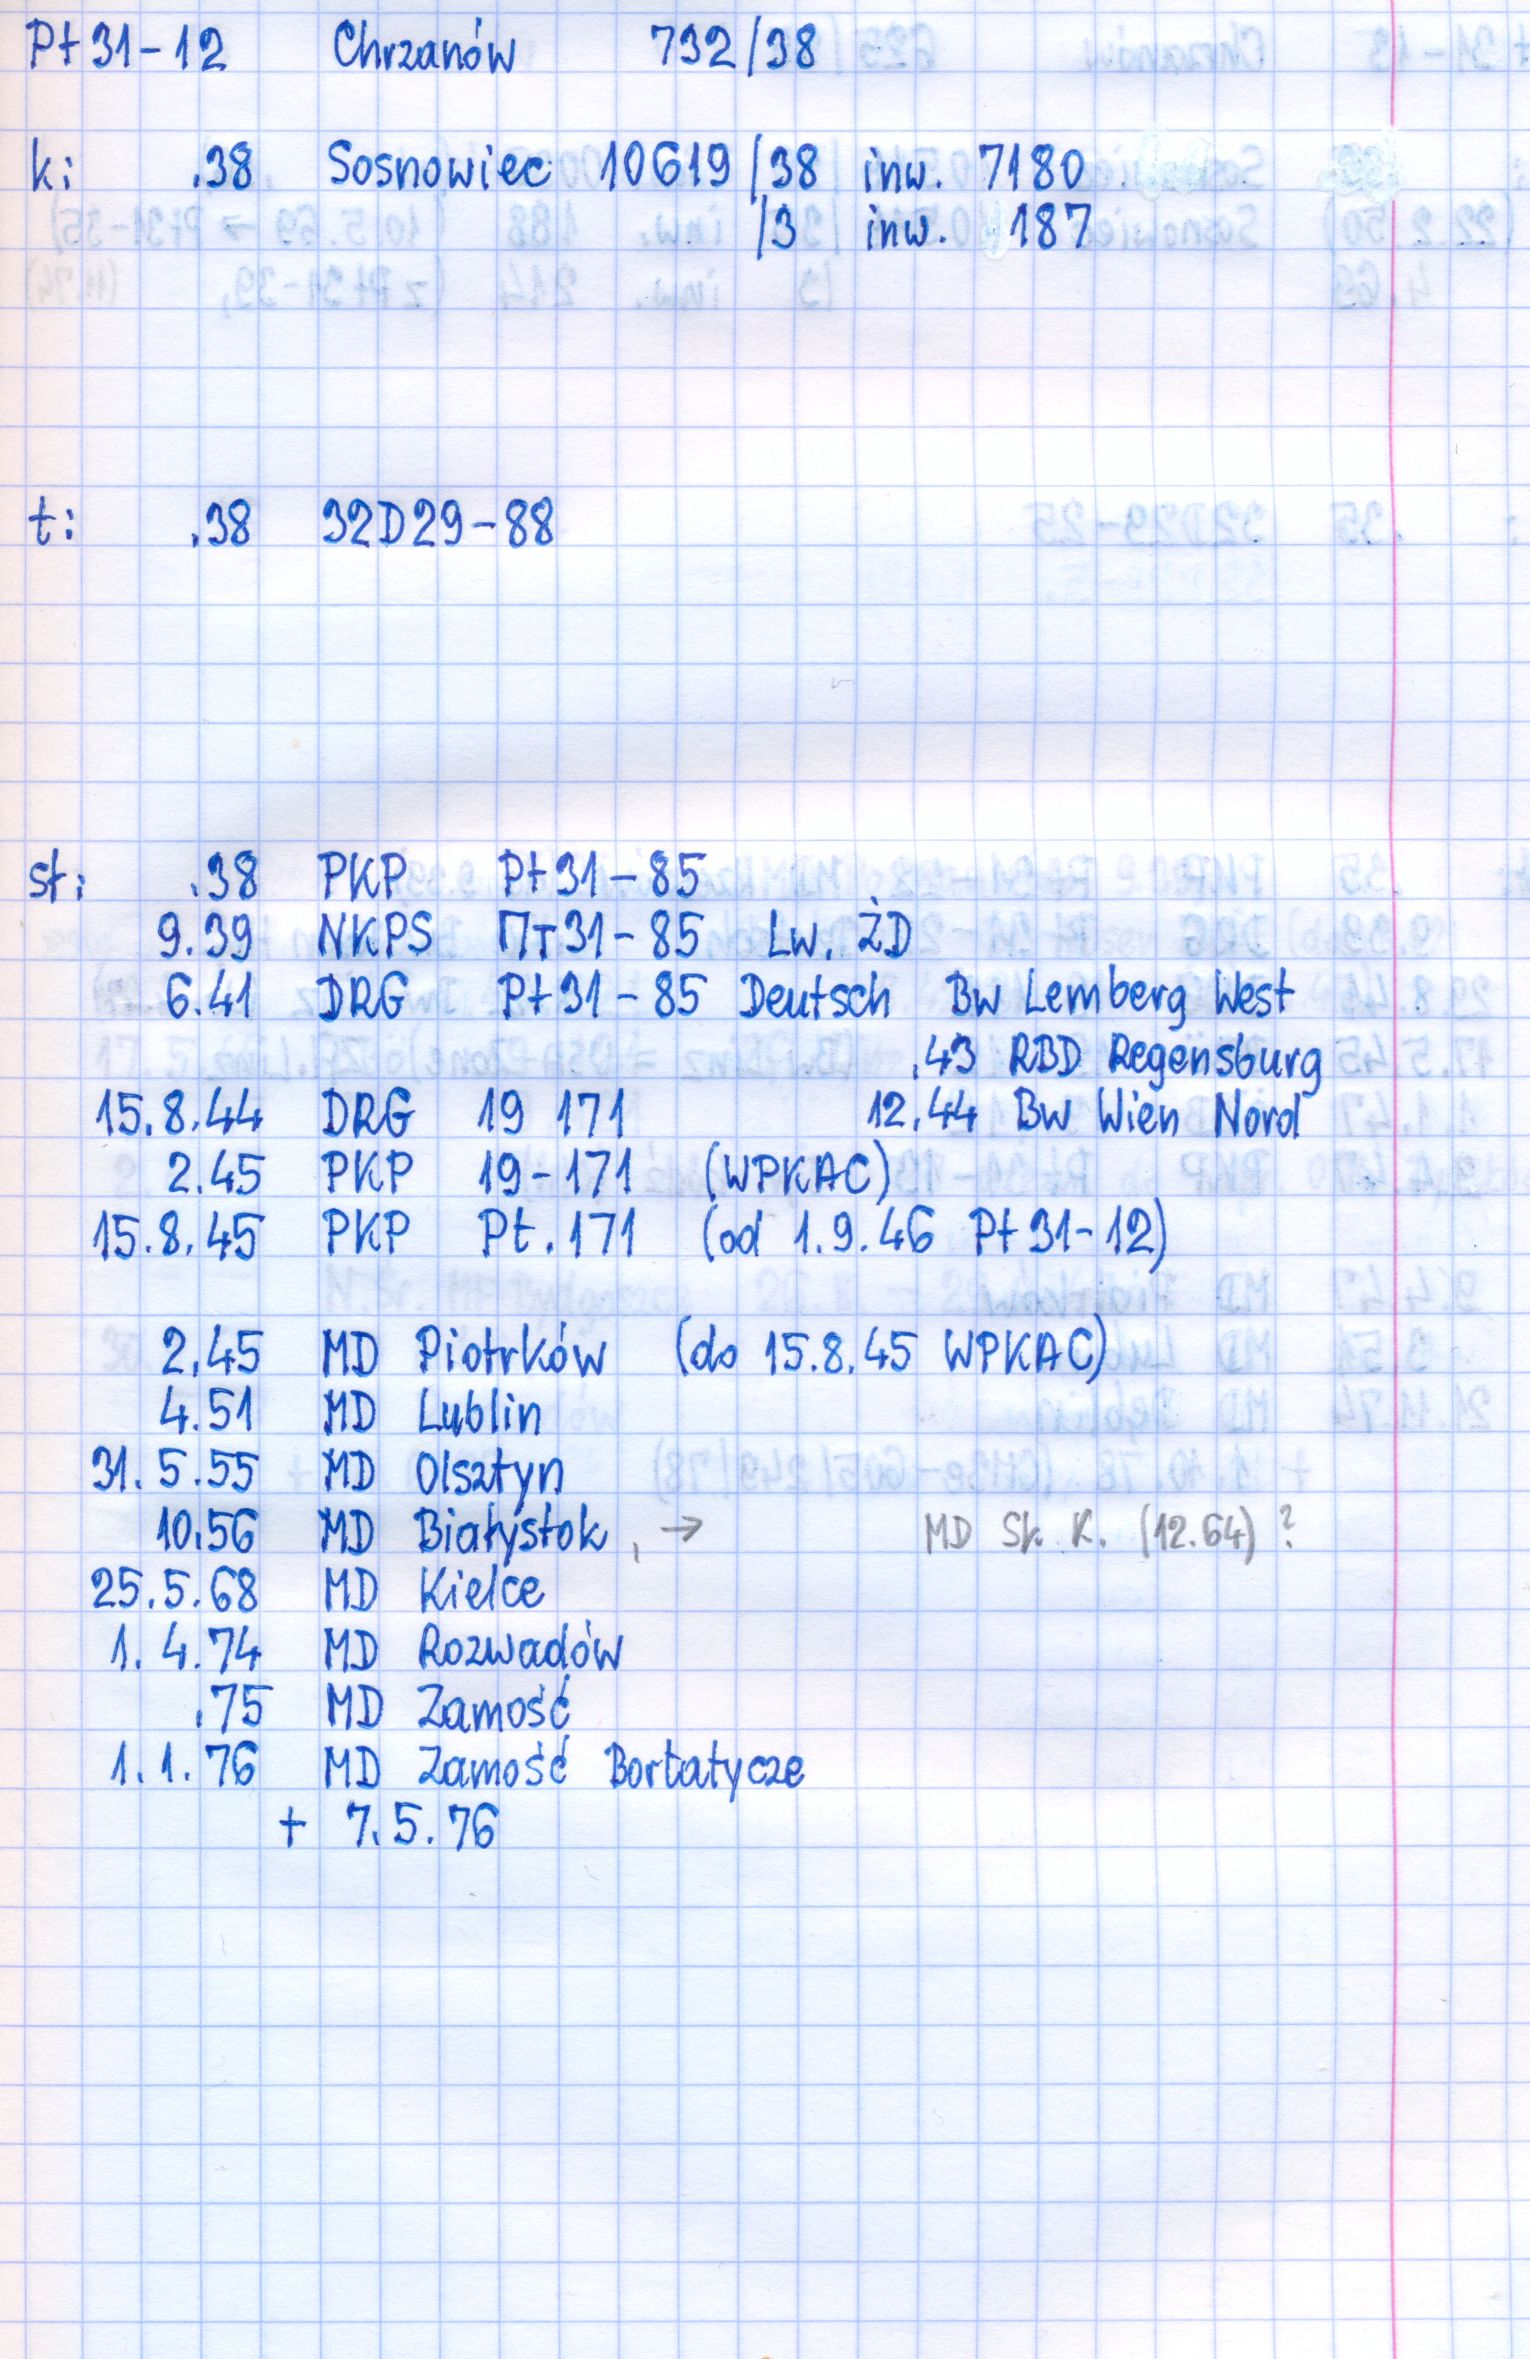 Pt31-12 Chrzanów 732/38
k: .38 Sosnowiec 10619/38 inw. 7180
/3 inw. 187
t: .38 32D29-88
st: .38 PKP Pt31-85
9.39 NKPS Пт31-85 Lw. ŻD
6.41 DRG Pt31-85 Deutsch Bw Lemberg West
.43 RBD Regensburg
15.8.44 DRG 19 171 12.44 Bw Wien Nord
2.45 PKP 19-171 (WPKAC)
15.8.45 PKP Pt.171 (od 1.9.46 Pt31-12)
2.45 MD Piotrków (do 15.8.45 WPKAC)
4.51 MD Lublin
31.5.55 MD Olsztyn
10.56 MD Białystok, → MD Sk. K. (12.64) ?
25.5.68 MD Kielce
1.4.74 MD Rozwadów
.75 MD Zamość
1.1.76 MD Zamość Bortatycze
+ 7.5.76